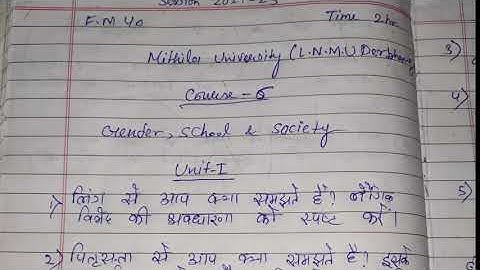 Session 2021-23
F.M 40 Time 2hr
Mithila University (L.N.M.U) Darbhanga
Course - 6
Gender, School & Society
Unit-I
1) लिंग से आप क्या समझते हैं? लैंगिक
विभेद की अवधारणा को स्पष्ट करें।
2) पितृसत्ता से आप क्या समझते हैं? इसके
3)
4)
5)